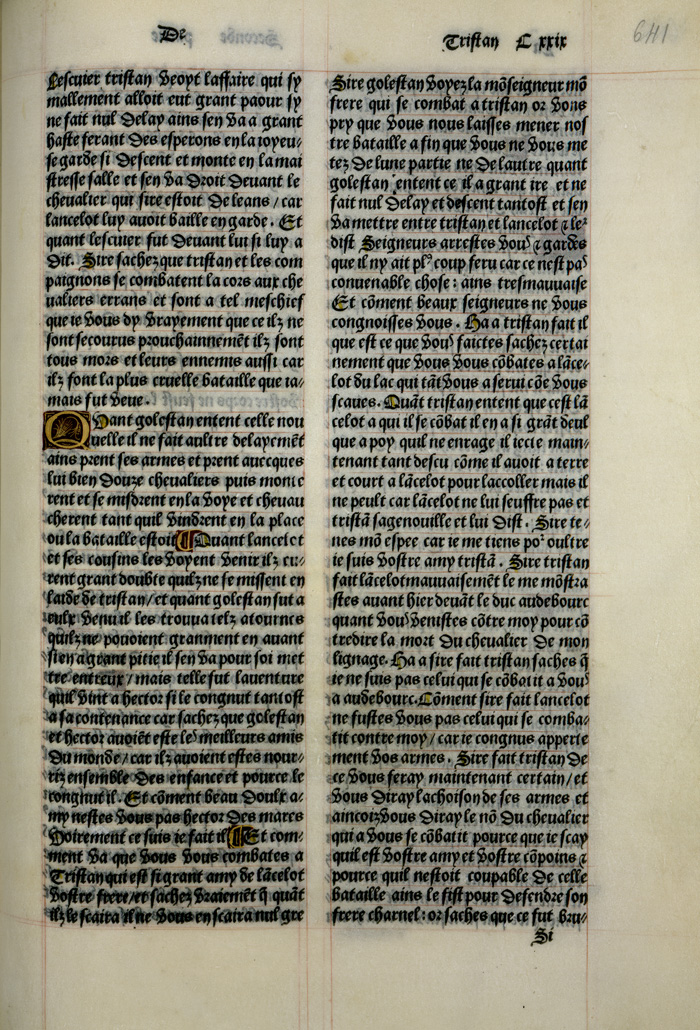 De
Tristan C xxix
641
Lescuier tristan veoyt laffaire qui sy
mallement alloit eut grant paour sy
ne fait nul delay ains sen va a grant
haste ferant des esperons en la ioyeu⸗
se garde si descent et monte en la mai
stresse salle et sen va droit devant le
chevalier qui sire estoit de leans / car
lancelot luy avoit baille en garde. Et
quant lescuier fut devant lui si luy a
dit. Sire sachez que tristan et les com
paignons se combatent la cors aux che
ualiers errans et sont a tel meschief
que ie vous dy vrayement que ce ilz ne
sont secourus prouchainnemēt ilz sont
tous mors et leurs ennemis aussi car
ilz font la plus cruelle bataille que ia⸗
mais fut veue.
Quant golestan entent celle nou
uelle il ne fait aultre delayemēt
ains prent ses armes et prent auecques
lui bien douze chevaliers puis monte
rent et se misdrent en la voye et chevau
cherent tant quil vindrent en la place
ou la bataille estoit ¶ Quant lancelot
et ses cousins les voyent venir ilz eu⸗
rent grant doubte quilz ne se missent en
laide de tristan / et quant golestan fut a
eulx venu il les trouua telz atournes
quilz ne pouoient granment en auant
si en a grant pitie il sen va pour soi met
tre entreux / mais telle fut lauenture
quil vint a hector si le congnut tantost
a sa contenance car sachez que golestan
et hector auoiēt este leˢ meilleurs amis
du monde / car ilz auoient estes nour⸗
riz ensemble des enfance et pource le
congnut il. Et cōment beau doulx a⸗
my nestes vous pas hector des mares
Voirement ce suis ie fait il ¶ Et com⸗
ment va que vous vous combates a
Tristan qui est si grant amy de lācelot
vostre frere / et sachez vraiemēt q̄ quāt
ilz le scaira il ne vous en scaira nul gre
Sire golestan voyez la mōseigneur mō
frere qui se combat a tristan or vous
pry que vous nous laisses mener nos
tre bataille a fin que vous ne vous me
tez de lune partie ne de lautre quant
golestan entent ce il a grant ire et ne
fait nul delay et descent tantost et sen
va mettre entre tristan et lancelot ⁊ leʳ
dist Seigneurs arrestes vouˢ ⁊ gardes
que il ny ait plˢ coup feru car ce nest paˢ
conuenable chose: ains tresmauuaise
Et cōment beaux seigneurs ne vous
congnoisses vous. Ha a tristan fait il
que est ce que vouˢ faictes sachez certai
nement que vous vous cōbates a lāce⸗
lot du lac qui tāt vous a serui cōe vous
scaues. Quāt tristan entent que cest lā
celot a qui il se cōbat il en a si grāt deul
que a poy quil ne enrage il iecte main⸗
tenant tant descu cōme il auoit a terre
et court a lācelot pour laccoller mais il
ne peult car lācelot ne lui seuffre pas et
tristā sagenouille et lui dist. Sire te⸗
nes mō espee car ie me tiens poʳ oultre
ie suis vostre amy tristā. Sire tristan
fait lācelot mauuaisemēt le me mōstra
stes auant hier deuāt le duc audebourc
quant vouˢ venistes cōtre moy pour cō
tredire la mort du chevalier de mon
lignage. Ha a sire fait tristan saches q̄
ie ne suis pas celui qui se cōbatit a vouˢ
a audebourc. Cōment sire fait lancelot
ne fustes vous pas celui qui se comba⸗
tit contre moy / car ie congnus apperte
ment vos armes. Sire fait tristan de
ce vous feray maintenant certain / et
vous diray lachoison de ses armes et
aincoiz vous diray le nō du chevalier
qui a vous se cōbatit pource que ie scay
quil est vostre amy et vostre cōpoins ⁊
pource quil nestoit coupable de celle
bataille ains le fist pour deffendre son
frere charnel: or saches que ce fut bru⸗
Si